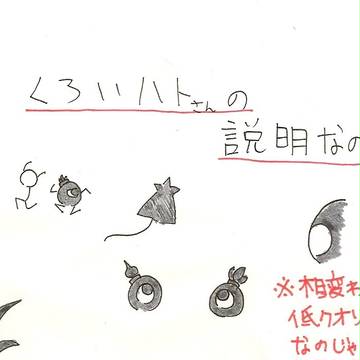 くろいハトさんの
説明なの
※相変わ
低クオリ
なのじゃ